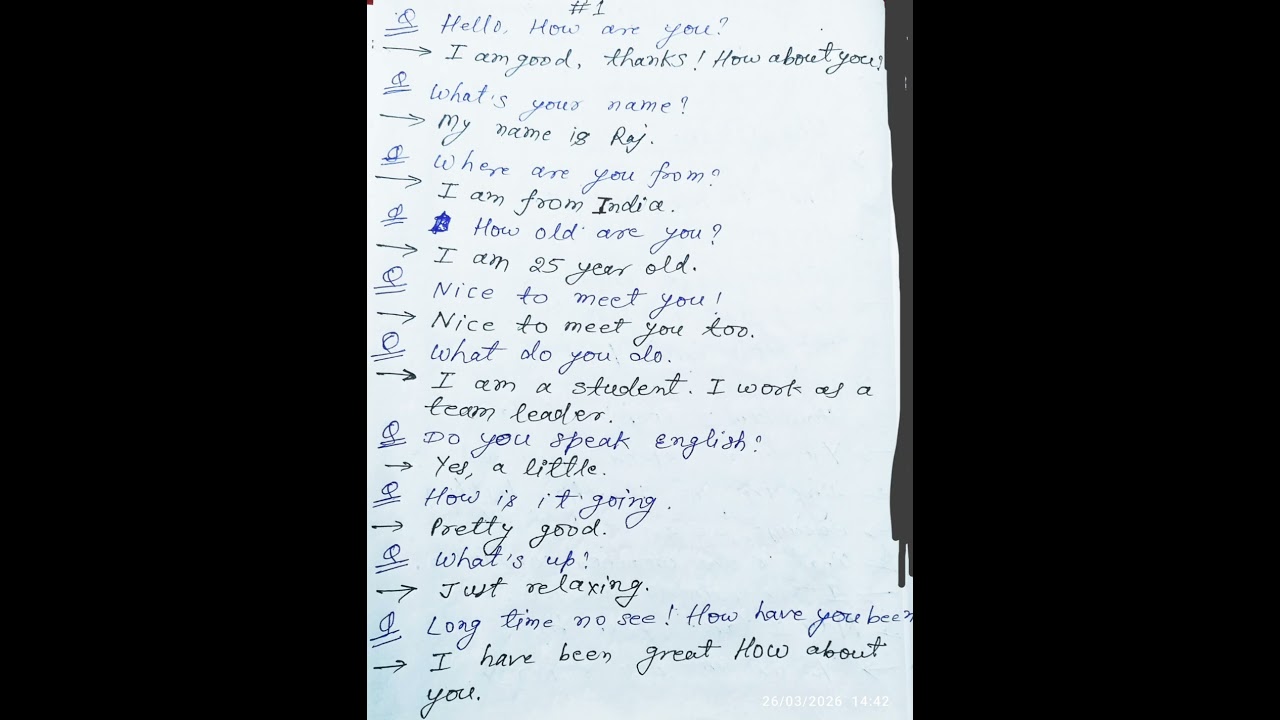 #1
Q Hello, How are you?
→ I am good, thanks! How about you?
Q What's your name?
→ My name is Raj.
Q Where are you from?
→ I am from India.
Q How old are you?
→ I am 25 year old.
Q Nice to meet you!
→ Nice to meet you too.
Q What do you do.
→ I am a student. I work as a
team leader.
Q Do you speak English?
→ Yes, a little.
Q How is it going.
→ Pretty good.
Q What's up?
→ Just relaxing.
Q Long time no see! How have you been
→ I have been great How about
you.
26/03/2026 14:42